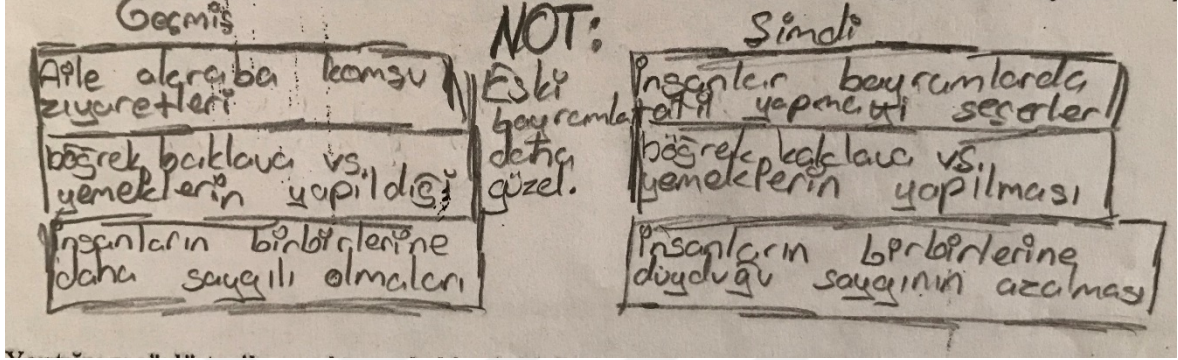 Geçmiş
Aile akraba komşu
ziyaretleri
böğrek baklava vs.
yemeklerin yapıldığı
İnsanların birbirlerine
daha saygılı olmaları
NOT:
Eski
bayramlar
daha
güzel.
Şimdi
İnsanlar bayramlarda
tatil yapmayı seçerler
böğrek, kaklava vs.
yemeklerin yapılması
İnsanların birbirlerine
duyduğu saygının azalması